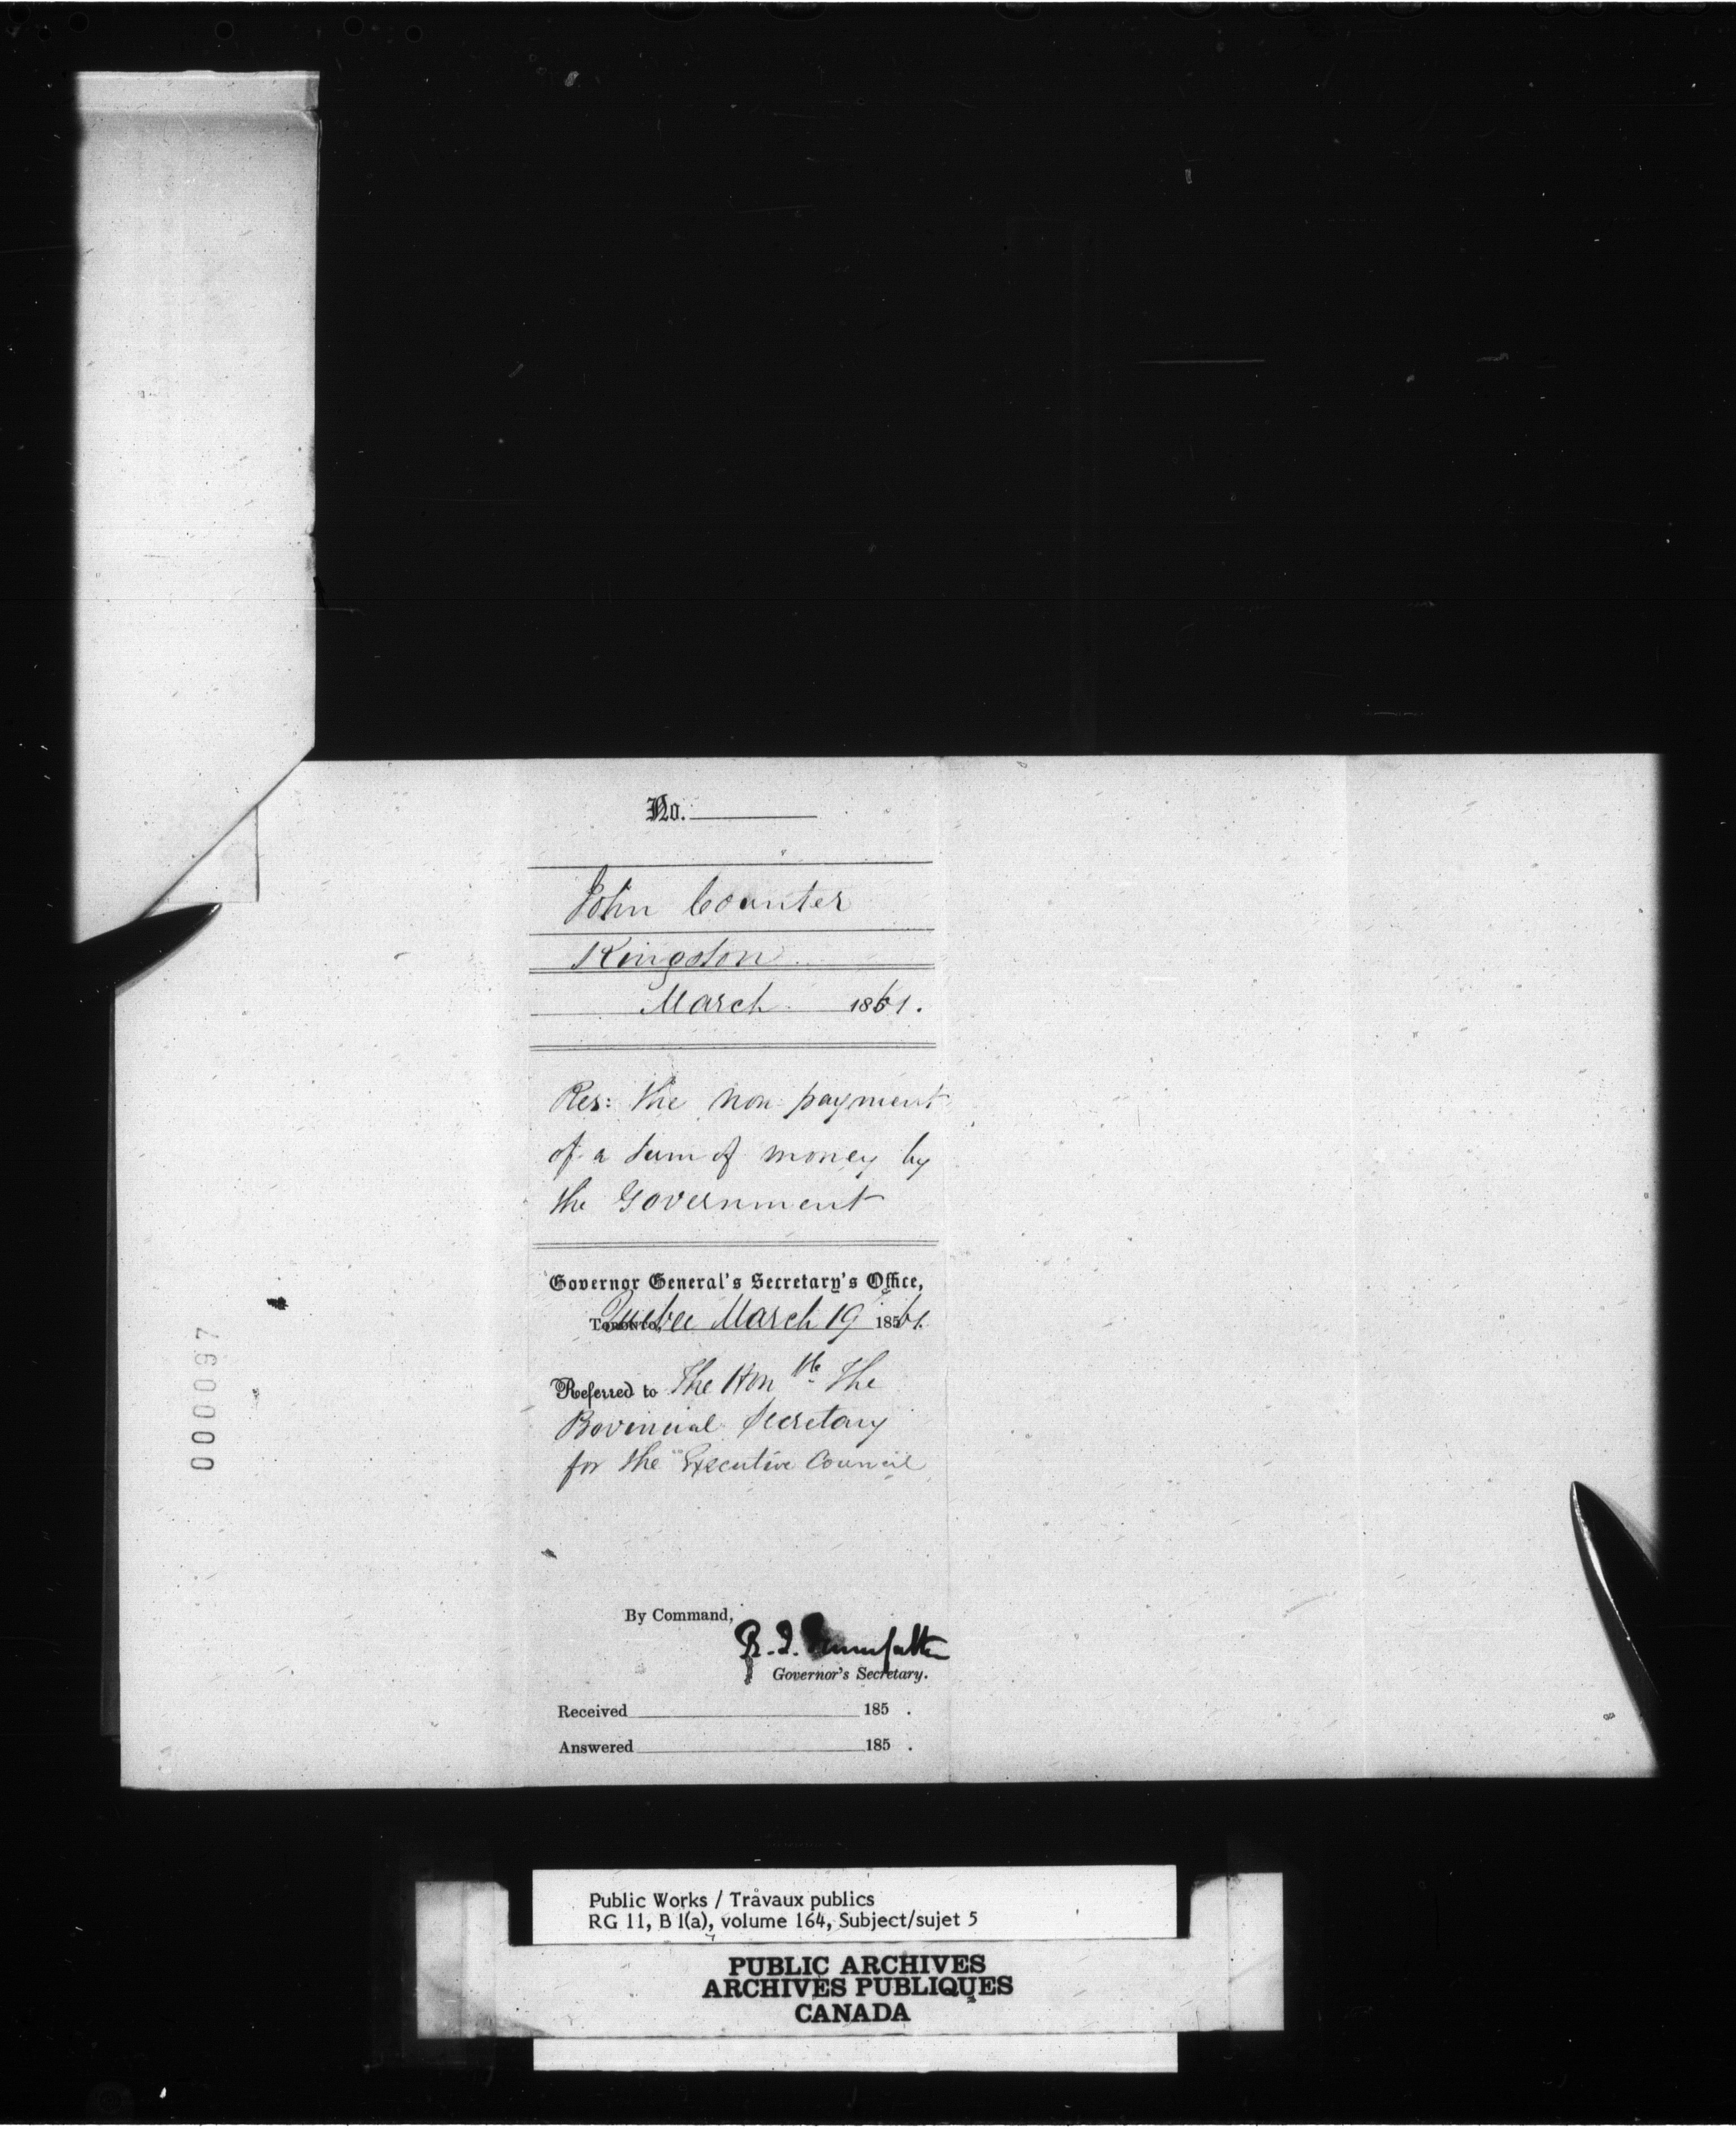 No.
John Counter
Kingston
March 1861.
Res: the non payment
of a sum of money by
the Government
Governor General's Secretary's Office,
Toronto, Quebec March 19 1861.
Referred to The Honble The
Provincial Secretary
for the Executive Council
By Command,
R. T. Pennefather
Governor's Secretary.
Received 185 .
Answered 185 .
000097
Public Works / Travaux publics
RG 11, B 1(a), volume 164, Subject/sujet 5
PUBLIC ARCHIVES
ARCHIVES PUBLIQUES
CANADA